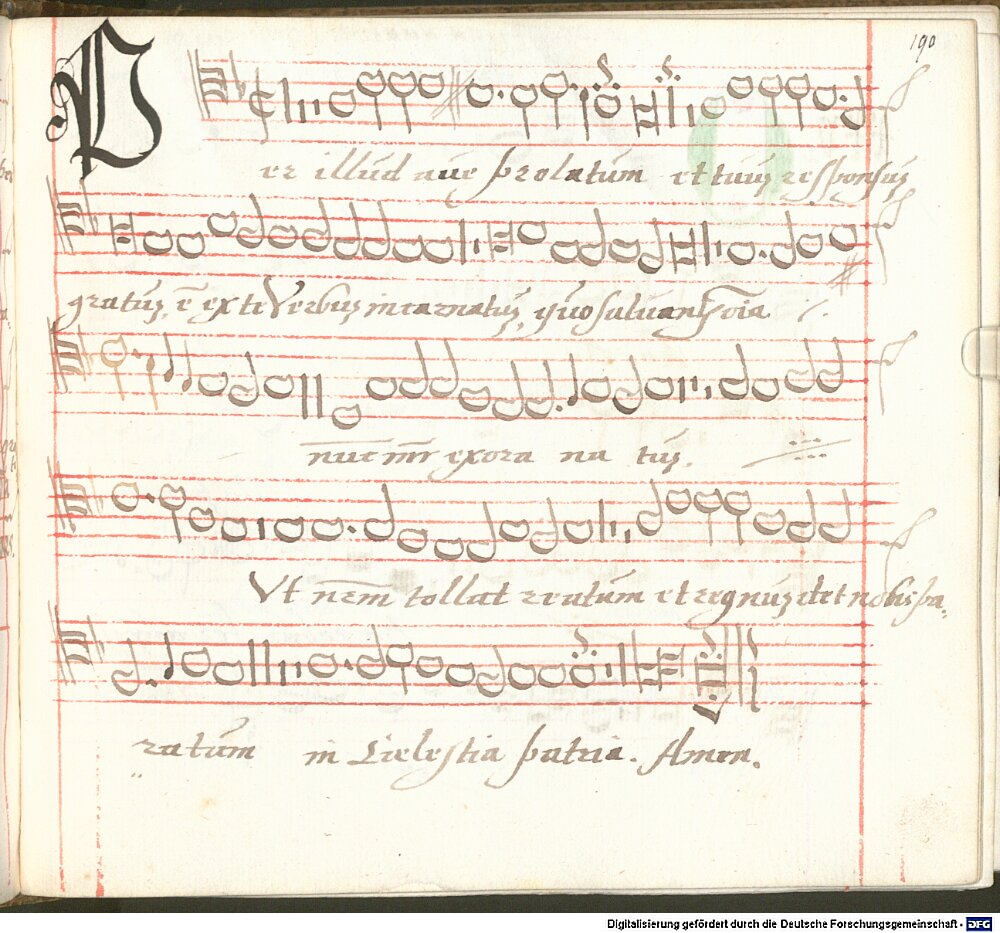 190
Per illud aue prolatum et tuus responsus
gratus, ē ex te Verbus incarnatus, quo saluantr oīa
nunc mr exora na tus.
Ut nrm tollat reatum et regnus det nobis pa,
ratum in Cielestia patria. Amen.
Digitalisierung gefördert durch die Deutsche Forschungsgemeinschaft - DFG